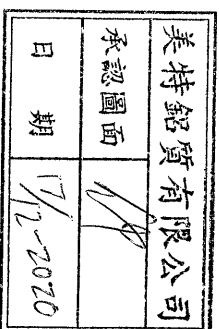 美特鋁質有限公司
承認圖面
日期 17/12-2020